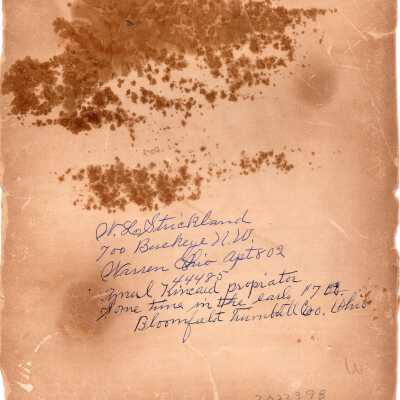 W. L. Strickland
700 Buckeye N.W.
Warren Ohio Apt 802
44485
Kincaid propiator
some time in the early
Bloomfield Trumbull Co. Ohio